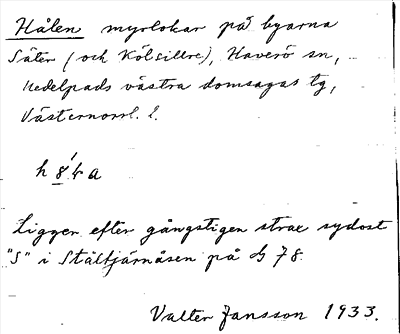 Hålen myrlokar på byarna
Säter (och Kölsillre), Haverö sn,
Medelpads västra domsagas tg,
Västernorrl. l.
Ligger efter gångstigen strax sydost
"S" i Ståltjärnåsen på G 78.
Valter Jansson 1933.